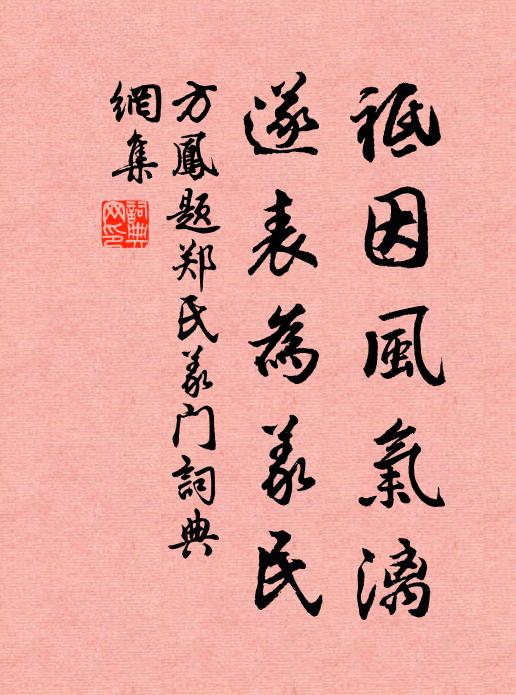 祗因風氣漓
遂表為義民
方鳳题郑氏義门詞典
網集
詞典網印